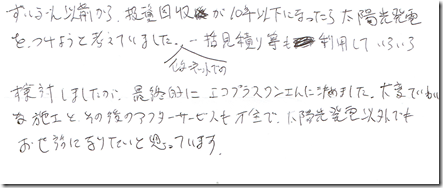 ずいぶん以前から、投資回収が10年以下になったら太陽光発電
をつけようと考えていました。一括見積り等も利用していろいろ
インターネットでの
検討しましたが、最終的にエコプラスワンさんに決めました。大変ていねい
な施工とその後のアフターサービスも万全で、太陽光発電以外でも
お世話になりたいと思っています。